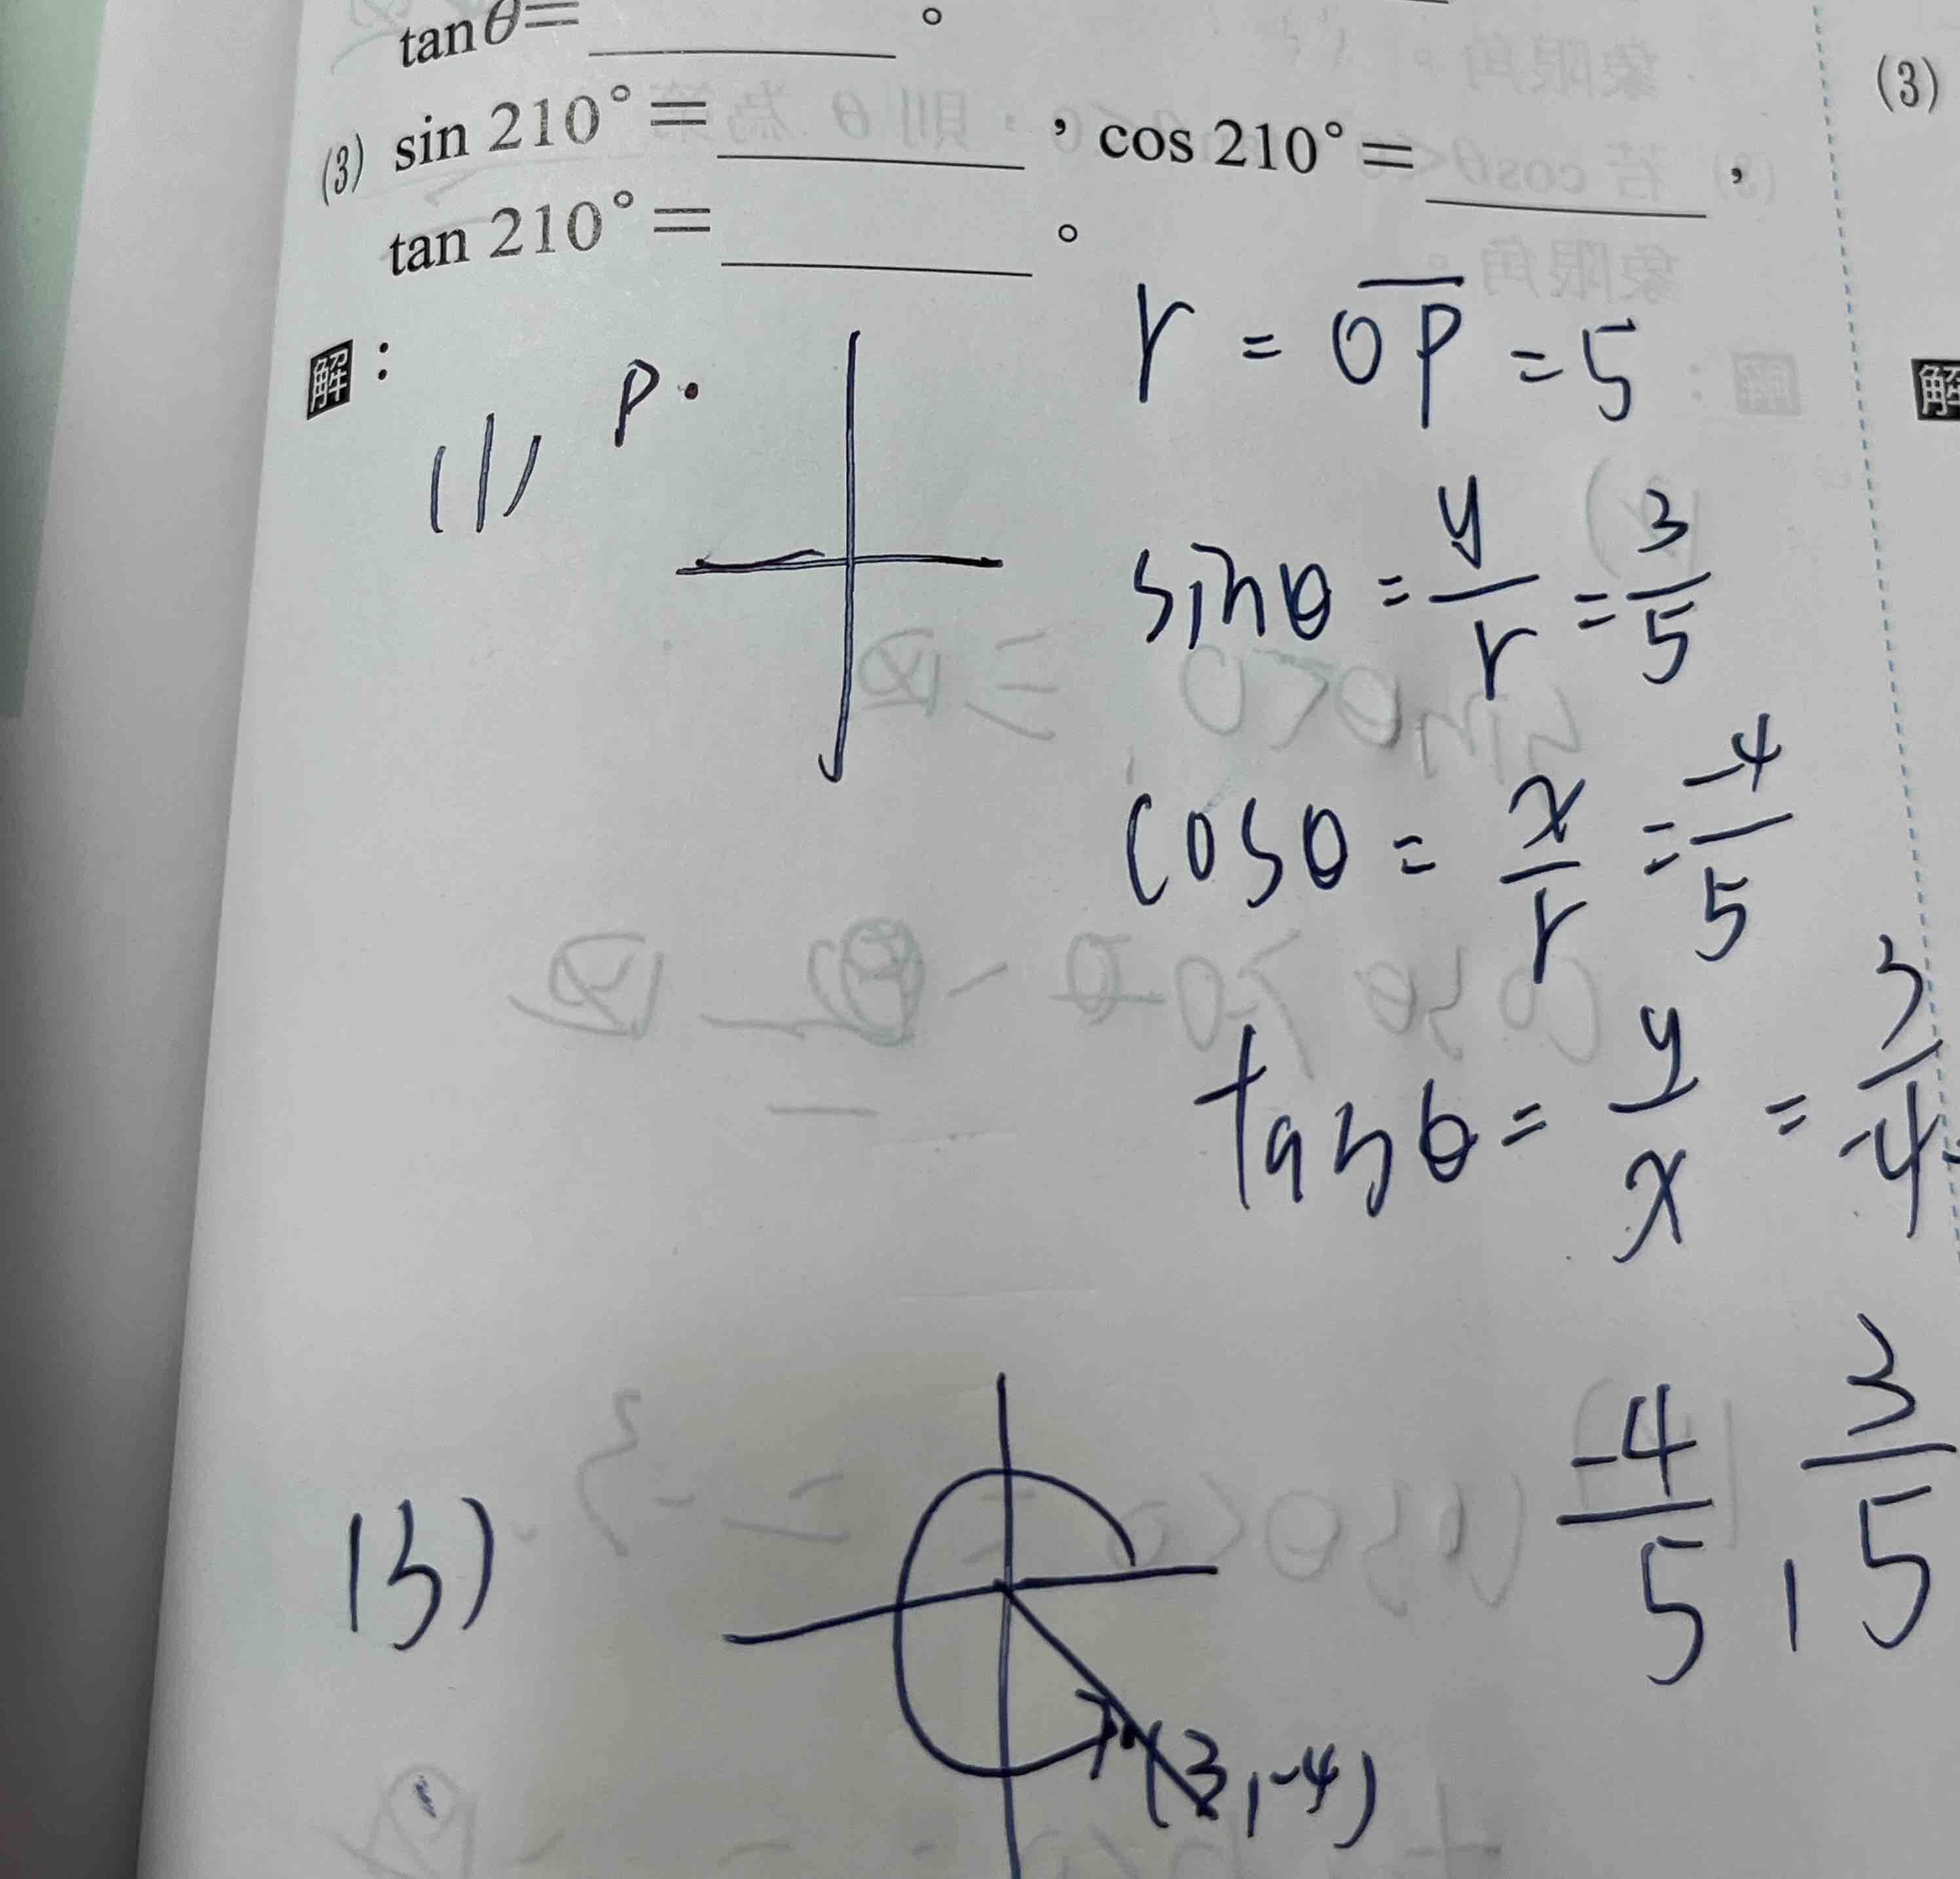 tanθ=______。
(3) sin 210°=______，cos 210°=______，
tan 210°=______。
(3)
解：
解
(1) P
r = OP = 5
sinθ = y/r = 3/5
cosθ = x/r = -4/5
tanθ = y/x = 3/-4
-4/5 , 3/5
(3)
(3,-4)